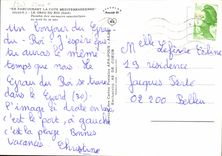 "EN PARCOURANT LA COTE MEDITERRANEENNE"
LE GRAU DU ROI (Gard)
Un bonjour du Grau
du Roi. J'espère que
tu auras le même
temps que nous. Le
Grau du Roi se trouve
dans le Gard (30).
L'image à droite en haut
c'est le port, à gauche
c'est la plage. Bonnes
vacances. Christine
Melle Lefèvre Céline
29 résidence
Jacques Prete
02 200 Belleu